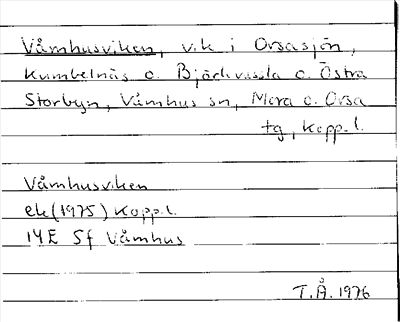 Våmhusviken, vik i Orsasjön,
Kumbelnäs o. Björkvassla o. Östra
Storbyn, Våmhus sn, Mora o. Orsa
tg, Kopp. l.
Våmhusviken
ek (1975) Kopp. l.
14E 5f Våmhus
T.Å. 1976